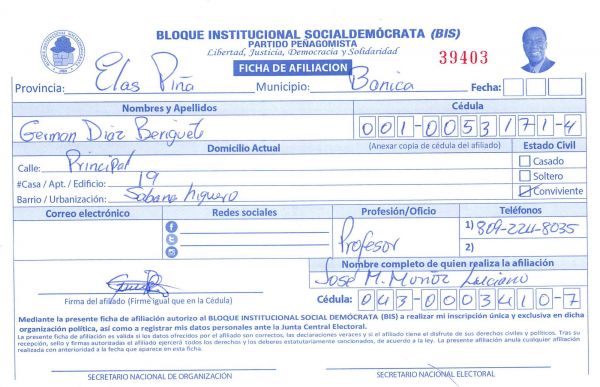 BLOQUE INSTITUCIONAL SOCIALDEMÓCRATA (BIS)
PARTIDO PEÑAGOMISTA
Libertad, Justicia, Democracia y Solidaridad
39403
FICHA DE AFILIACION
Provincia: Elas Piña Municipio: Banica Fecha:
Nombres y Apellidos Cédula
German Diaz Beriguete 001-0053171-4
Domicilio Actual (Anexar copia de cédula del afiliado) Estado Civil
Calle: Principal Casado
#Casa / Apt. / Edificio: 19 Soltero
Barrio / Urbanización: Sabana higuero Conviviente
Correo electrónico Redes sociales Profesión/Oficio Teléfonos
Profesor 1) 809-224-8035
2)
Nombre completo de quien realiza la afiliación
José M. Muñoz Luciano
Firma del afilado (Firme igual que en la Cédula) Cédula: 043-0003410-7
Mediante la presente ficha de afiliación autorizo al BLOQUE INSTITUCIONAL SOCIAL DEMÓCRATA (BIS) a realizar mi inscripción única y exclusiva en dicha
organización política, así como a registrar mis datos personales ante la Junta Central Electoral.
La presente ficha de afiliación es válida si los datos ofrecidos por el afiliado son correctos, las declaraciones veraces y si el afiliado tiene el disfrute de sus derechos civiles y políticos. Tras su
recepción, sello y firmas autorizadas el afiliado ejercerá todos los derechos y los deberes estatutariamente sancionados, de acuerdo a la ley. La presente afiliación anula cualquier afiliación
realizada con anterioridad a la fecha que aparece en esta ficha.
SECRETARIO NACIONAL DE ORGANIZACIÓN SECRETARIO NACIONAL ELECTORAL